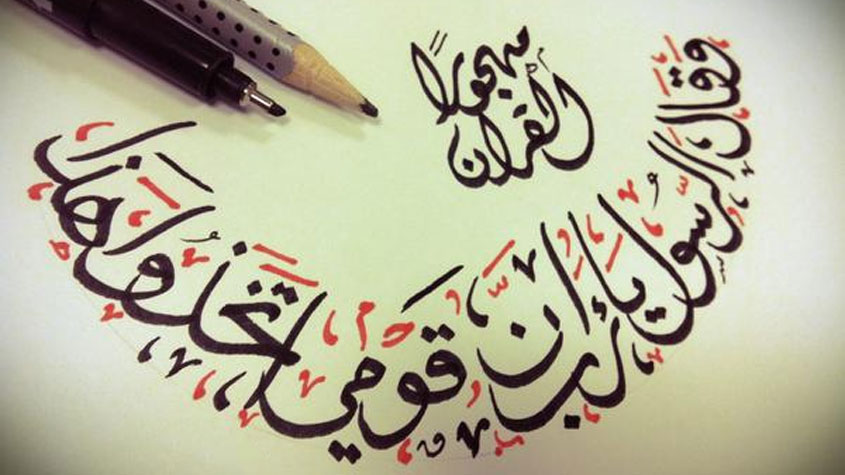 وقال الرسول يا رب ان قومي اتخذوا هذا
القران
مهجورا